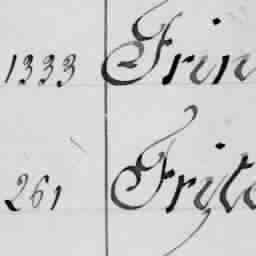 1333 Frin
261 Frits